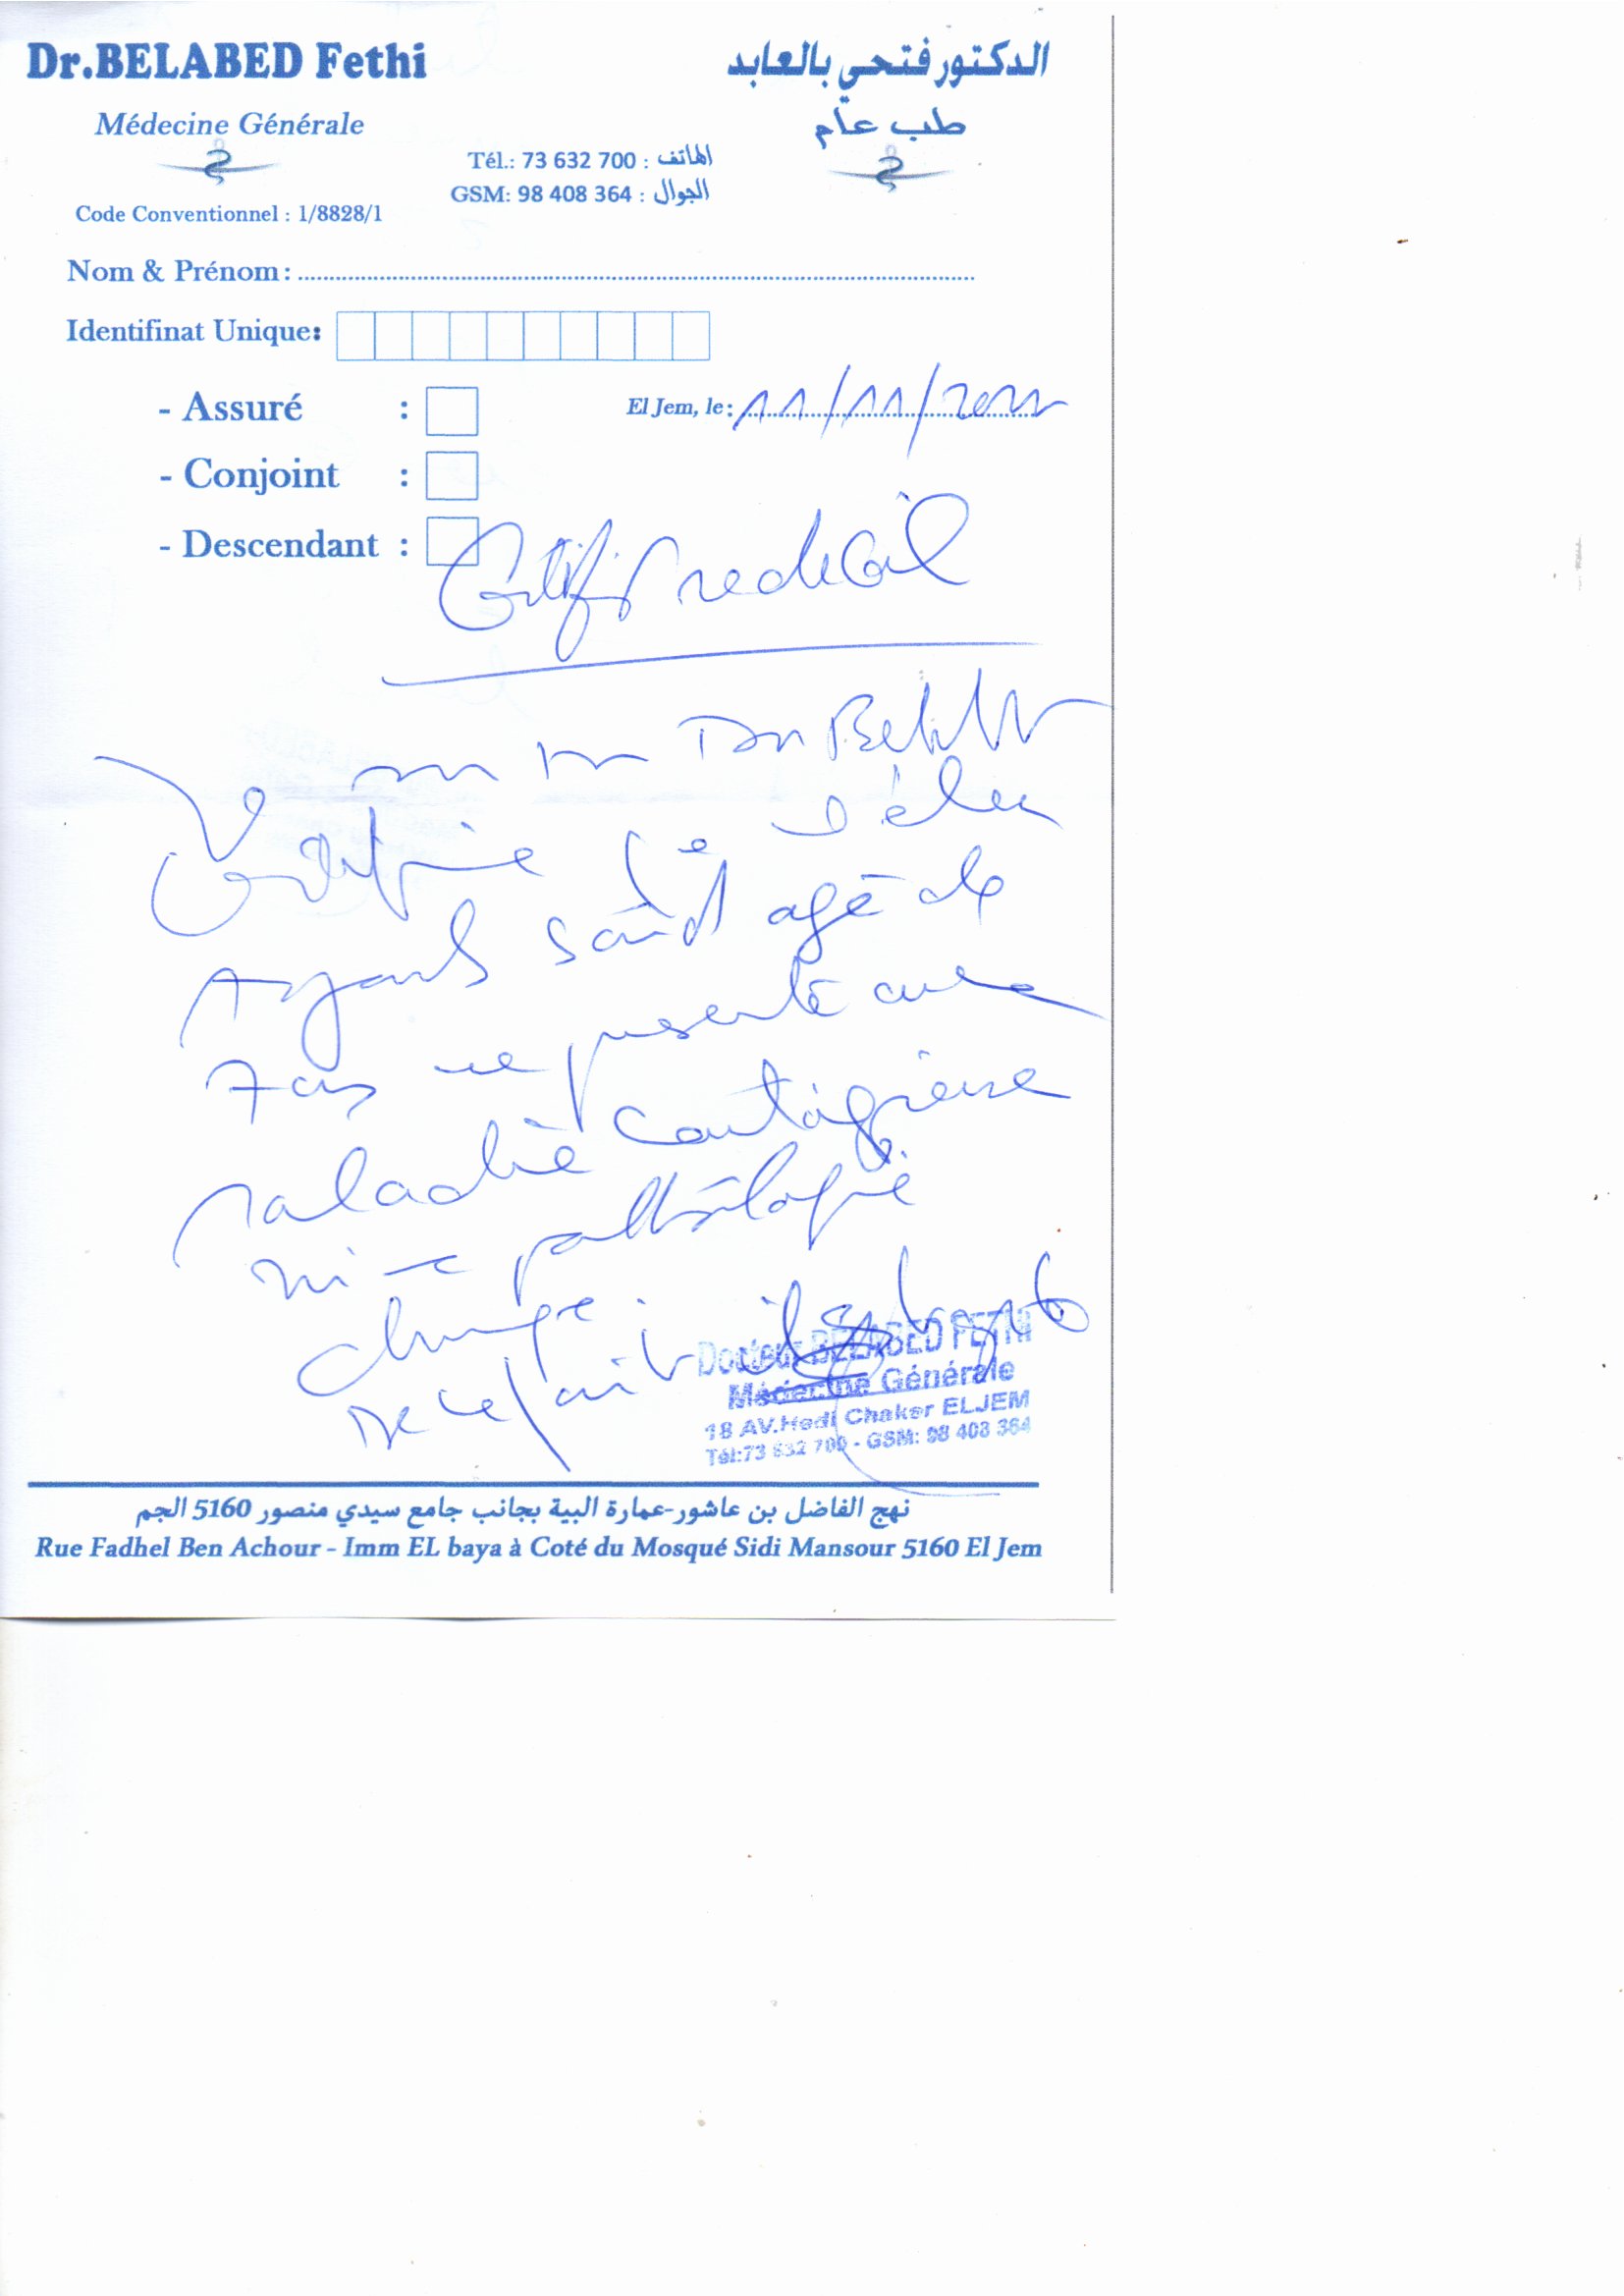 Dr.BELABED Fethi
الدكتور فتحي بالعابد
Médecine Générale
طب عام
Tél.: 73 632 700 : الهاتف
GSM: 98 408 364 : الجوال
Code Conventionnel : 1/8828/1
Nom & Prénom:
Identifinat Unique:
- Assuré :
El Jem, le: 11/11/2022
- Conjoint :
- Descendant :
Certif medical
Je Dr
Certifie l'élève
Ayoub Saïd agé de
7 ans ne présente aucune
maladie contagieuse
ni pathologie
Docteur BELABED FETHI
Médecine Générale
18 AV.Hedi Chaker ELJEM
Tél:73 632 700 - GSM: 98 408 364
نهج الفاضل بن عاشور-عمارة البية بجانب جامع سيدي منصور 5160 الجم
Rue Fadhel Ben Achour - Imm EL baya à Coté du Mosqué Sidi Mansour 5160 El Jem